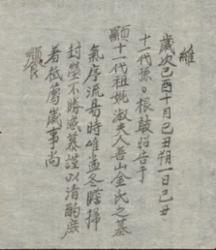 維
歲次己酉十月己丑朔一日己丑
十一代孫 根 敢昭告于
顯十一代祖妣淑夫人善山金氏之墓
氣序流易時維孟冬瞻掃
封塋不勝感慕謹以清酌庶
羞祗薦歲事尚
饗